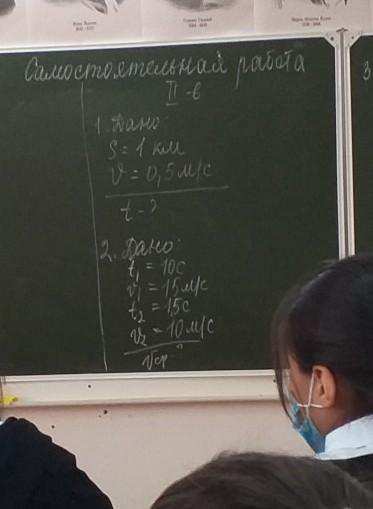 Самостоятельная работа
II-в
1. Дано:
S = 1 км
V = 0,5 м/с
t - ?
2. Дано:
t₁ = 10с
v₁ = 15м/с
t₂ = 15с
v₂ = 10м/с
Vср - ?